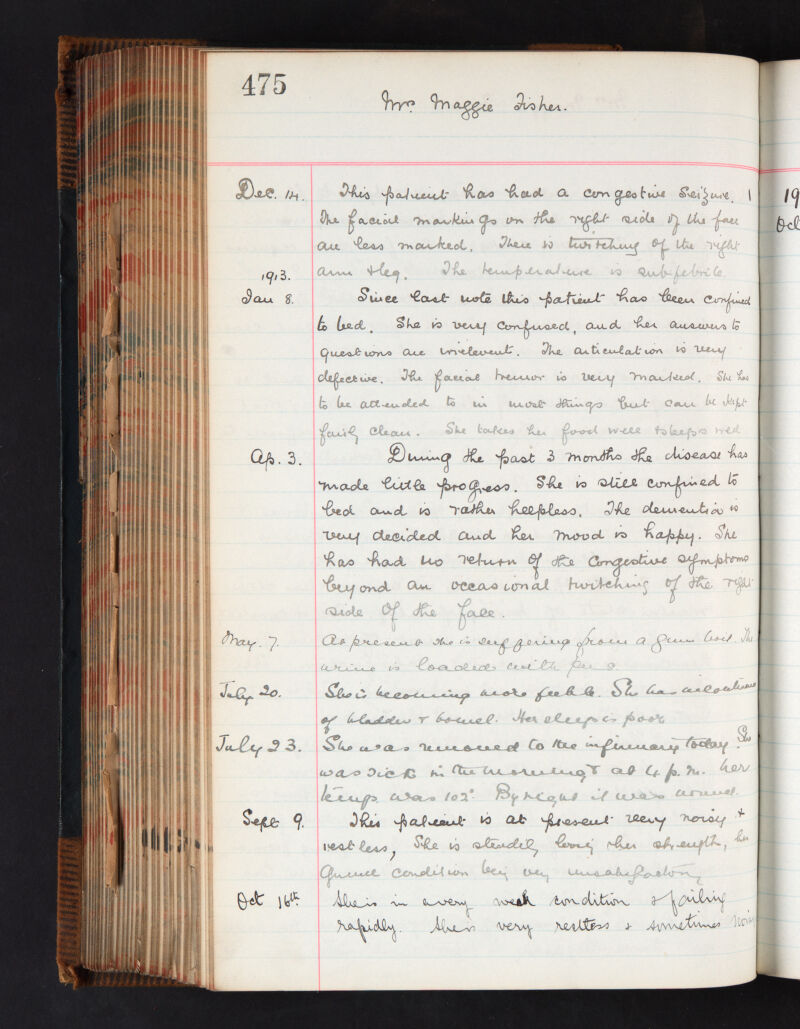 475
Mrs. Maggie Fisher.
Dec. 14. This patient has had a congestive seizure.
The facial markings on the right side of the face
are less marked. There is twitching of the right
arm & leg. The temperature is subfebrile.
1913.
Jan 8. Since last note this patient has been confined
to bed. She is very confused, and her answers to
questions are irrelevent. The articulation is very
defective. The facial tremor is very marked. She has
to be attended to in most things but can be kept
fairly clean. She takes her food well & sleeps well
Ap. 3. During the past 3 months the disease has
made little progress. She is still confined to
bed and is rather helpless. The dementia is
very decided and her mood is happy. She
has had no return of the congestive symptoms
beyond an occasional twitching of the right
side of the face.
May. 7. At present she is suffering from a gum boil. The
urine is loaded with pus.
July 20. She is becoming more feeble. She has incontinence
of bladder & bowel. Her sleep is poor
July 23. She was removed to the infirmary today. She
was sick in the morning & at 4 p.m. her
temp was 102°. By night it was normal.
Sept 9. This patient is at present very noisy &
restless, She is steadily losing her strength, her
condition being very unsatisfactory
Oct 16th. She is in a very weak condition & failing
rapidly. She is very restless & sometimes noisy
19
Oct